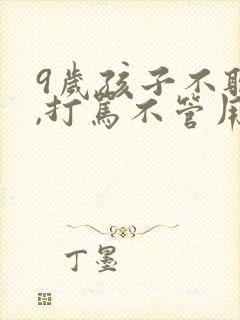 9歲孩子不
,打罵不管用
丁墨